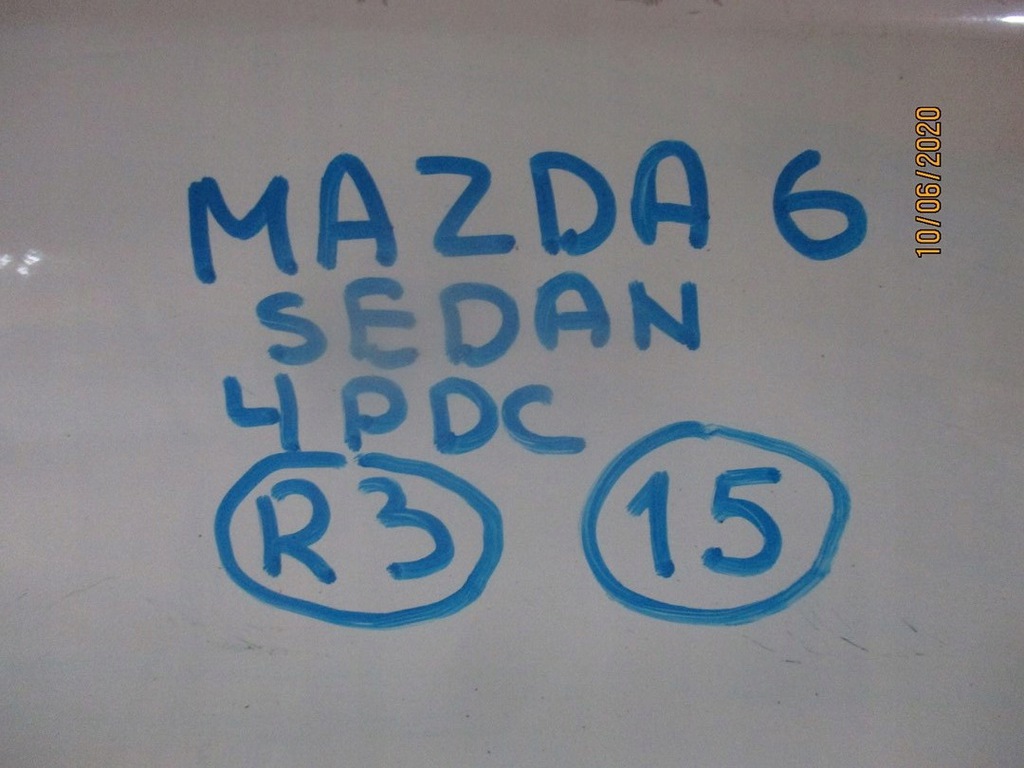 MAZDA 6
SEDAN
4 PDC
R3 15
10/06/2020